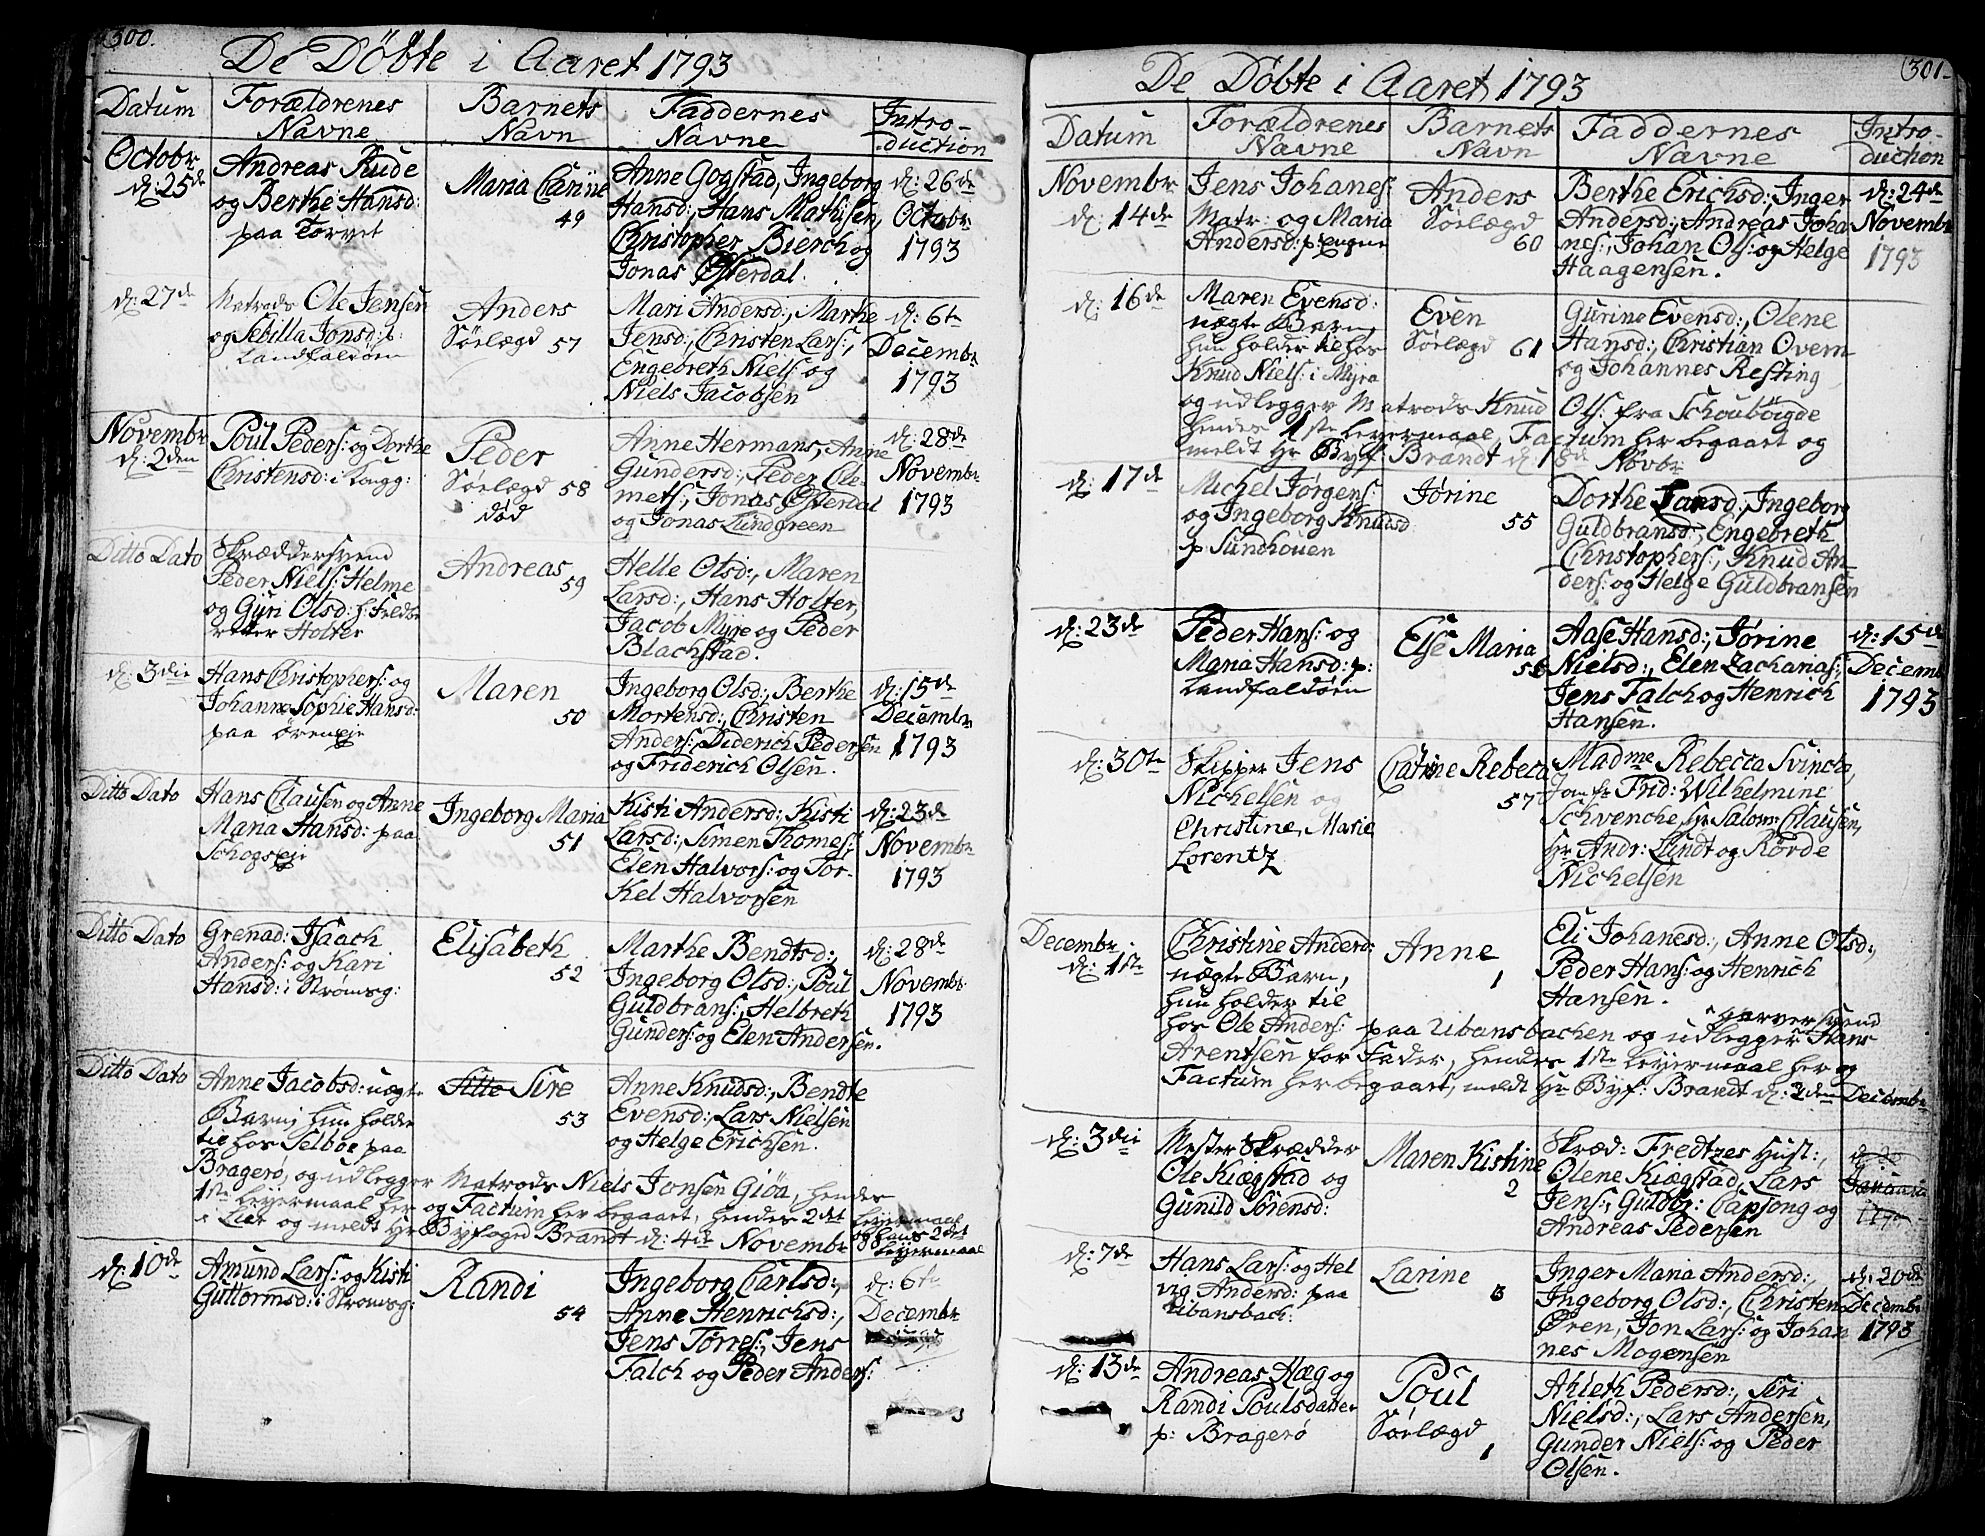 300.
De Döbte i Aaret 1793
Datum
Forældrenes
Navne
Barnets
Navn
Faddernes
Navne
Intro-
duction
Octobr
d: 25de
Andreas Rude
og Berthe Hansd:
paa Torvet
Maria Carine
49
Anne Gogstad, Ingeborg
Hansd:, Hans Mathisen,
Christopher Bierch og
Jonas Østerdal.
d: 26de
Octobr
1793
d: 27de
Matrods Ole Jensen
og Sebilla Jonsd: p:
Landfaldöen
Anders
Sörlægd 57
Mari Andersd:, Marthe
Jensd:, Christen Lars:,
Engebreth Niels: og
Niels Jacobsen
d: 6te
Decembr
1793
Novembr
d: 2den
Poul Peders: og Dorthe
Christensd: i Tangg:
Peder
Sörlægd 58
död
Anne Hermans, Anne
Gundersd:, Peder Cle-
mets:, Jonas Østerdal
og Jonas Lundgreen
d: 28de
Novembr
1793
Ditto Dato
Skræddersvend
Peder Niels: Helme
og Gyri Olsd: h: Fredb
retter Holter
Andreas
59
Helle Olsd:, Maren
Larsd:, Hans Holter,
Jacob Myre og Peder
Blachstad.
d: 3die
Hans Christophers: og
Johanne Sophie Hansd:
paa Öreneje
Maren
50
Ingeborg Olsd:, Berthe
Mortensd:, Christen
Anders:, Diderich Pedersen
og Friderich Olsen.
d: 15de
Decembr
1793
Ditto Dato
Hans Clausen og Anne
Maria Hansd: paa
Schogseje
Ingeborg Maria
51
Kisti Andersd:, Kisti
Larsd:, Simen Thomes:,
Elen Halvors: og Tor-
Kel Halvorsen
d: 23de
Novembr
1793
Ditto Dato
Grenad: Isaach
Anders: og Kari
Hansd: i Strömsg:
Elisabeth
52
Marthe Bendtsd:,
Ingeborg Olsd:, Poul
Guldbrans:, Helbreth
Gunders: og Elen Andersen.
d: 28de
Novembr
1793
Ditto Dato
Anne Jacobsd: uægte
Barn, hun holder
til hos Selboe paa
Siri
53
Anne Knudsd:, Bendte
Evensd:, Lars Nielsen
og Helge Erichsen.
Bragerö, og udlegger Matrods Niels Jonsen Giöa, hendes
1ste Leyermaal her og Factum her begaaet, hendes 2det Leyermaal
i Lier og meldt Hr Byfoged Brandt d: 4de Novembr og hans 2det
Leyermaal
d: 10de
Amund Lars: og Kisti
Guttormsd: i Strömsg:
Randi
54
Ingeborg Carlsd:,
Anne Henrichsd:,
Jens Torres:, Jens
Falch og Peder Anders:
d: 6te
Decembr
301.
De Döbte i Aaret 1793
Datum
Forældrenes
Navne
Barnets
Navn
Faddernes
Navne
Intro-
duction
Novembr
d: 14de
Jens Johanes:
Matr: og Maria
Andersd: p: Engene
Anders
Sörlægd
60
Berthe Erichsd:, Inger
Andersd:, Andreas Joha
nes:, Johan Ols: og Helge
Haagensen.
d: 24de
Novembr
1793
d: 16de
Maren Evensd:
uægte Barn,
hun holder til hos
Knud Niels: i Myra
Even
Sörlægd 61
Gurine Evensd:, Olene
Hansd:, Christian Ovem
og Johannes Resting
og udlegger Matrods Knud Ols: fra Schoubörgde
hendes 1ste Leyermaal, Factum her begaaet og
meldt Hr Byf: Brandt d: 18de Novbr
d: 17de
Michel Jörgens:
og Ingeborg Knudsd
p: Sundhouen
Jörine
55
Dorthe Larsd:, Ingeborg
Guldbransd:, Engebreth
Christophers:, Knud An-
ders: og Helge Guldbransen
d: 23de
Peder Hans: og
Maria Hansd: p:
Landfaldöen
Else Maria
56
Aase Hansd:, Jörine
Nielsd:, Elen Zacharias:,
Jens Falch og Henrich
Hansen.
d: 15de
Decemb
1793
d: 30te
Skipper Jens
Nichelsen og
Christine Marie
Lorentz
Catrine Rebeca
57
Madme Rebecca Svincha,
Jomfr Frid: Wilhelmine
Schvenche, Hr Salom: Clausen,
Hr Andr: Lundt og Rörde
Nichelsen
Decembr
d: 1ste
Christine Andersd:
uægte Barn,
hun holder til
Anne
1
Eli Johanesd:, Anne Olsd:,
Peder Hans: og Henrich
Hansen.
hos Ole Anders: paa Ubansbachen og udlegger garversvend Hans
Arentsen for Fader, hendes 1ste Leyermaal her og
Factum her begaaet, meldt Hr Byf: Brandt d: 2den Decembr
d: 3die
Mester Skrædder
Ole Kiøgstad og
Gunild Sörensd:
Maren Kistine
2
Skræd: Fredtzes Hust:,
Olene Kiøgstad, Lars
Jens:, Guldbr: Capsong og
Andreas Pedersen
d: 7de
Hans Lars: og Hel
vig Andersd: paa
Ubansbach:
Larine
3
Inger Maria Andersd:,
Ingeborg Olsd:, Christen
Ören, Jon Lars: og Johan
nes Mogensen
d: 20de
Decembr
1793
d: 13de
Andreas Hæg og
Randi Poulsdatter
p: Bragerö
Poul
Sörlægd
1
Ahleth Pedersd:, Siri
Nielsd:, Lars Andersen,
Gunder Niels: og Peder
Olsen.